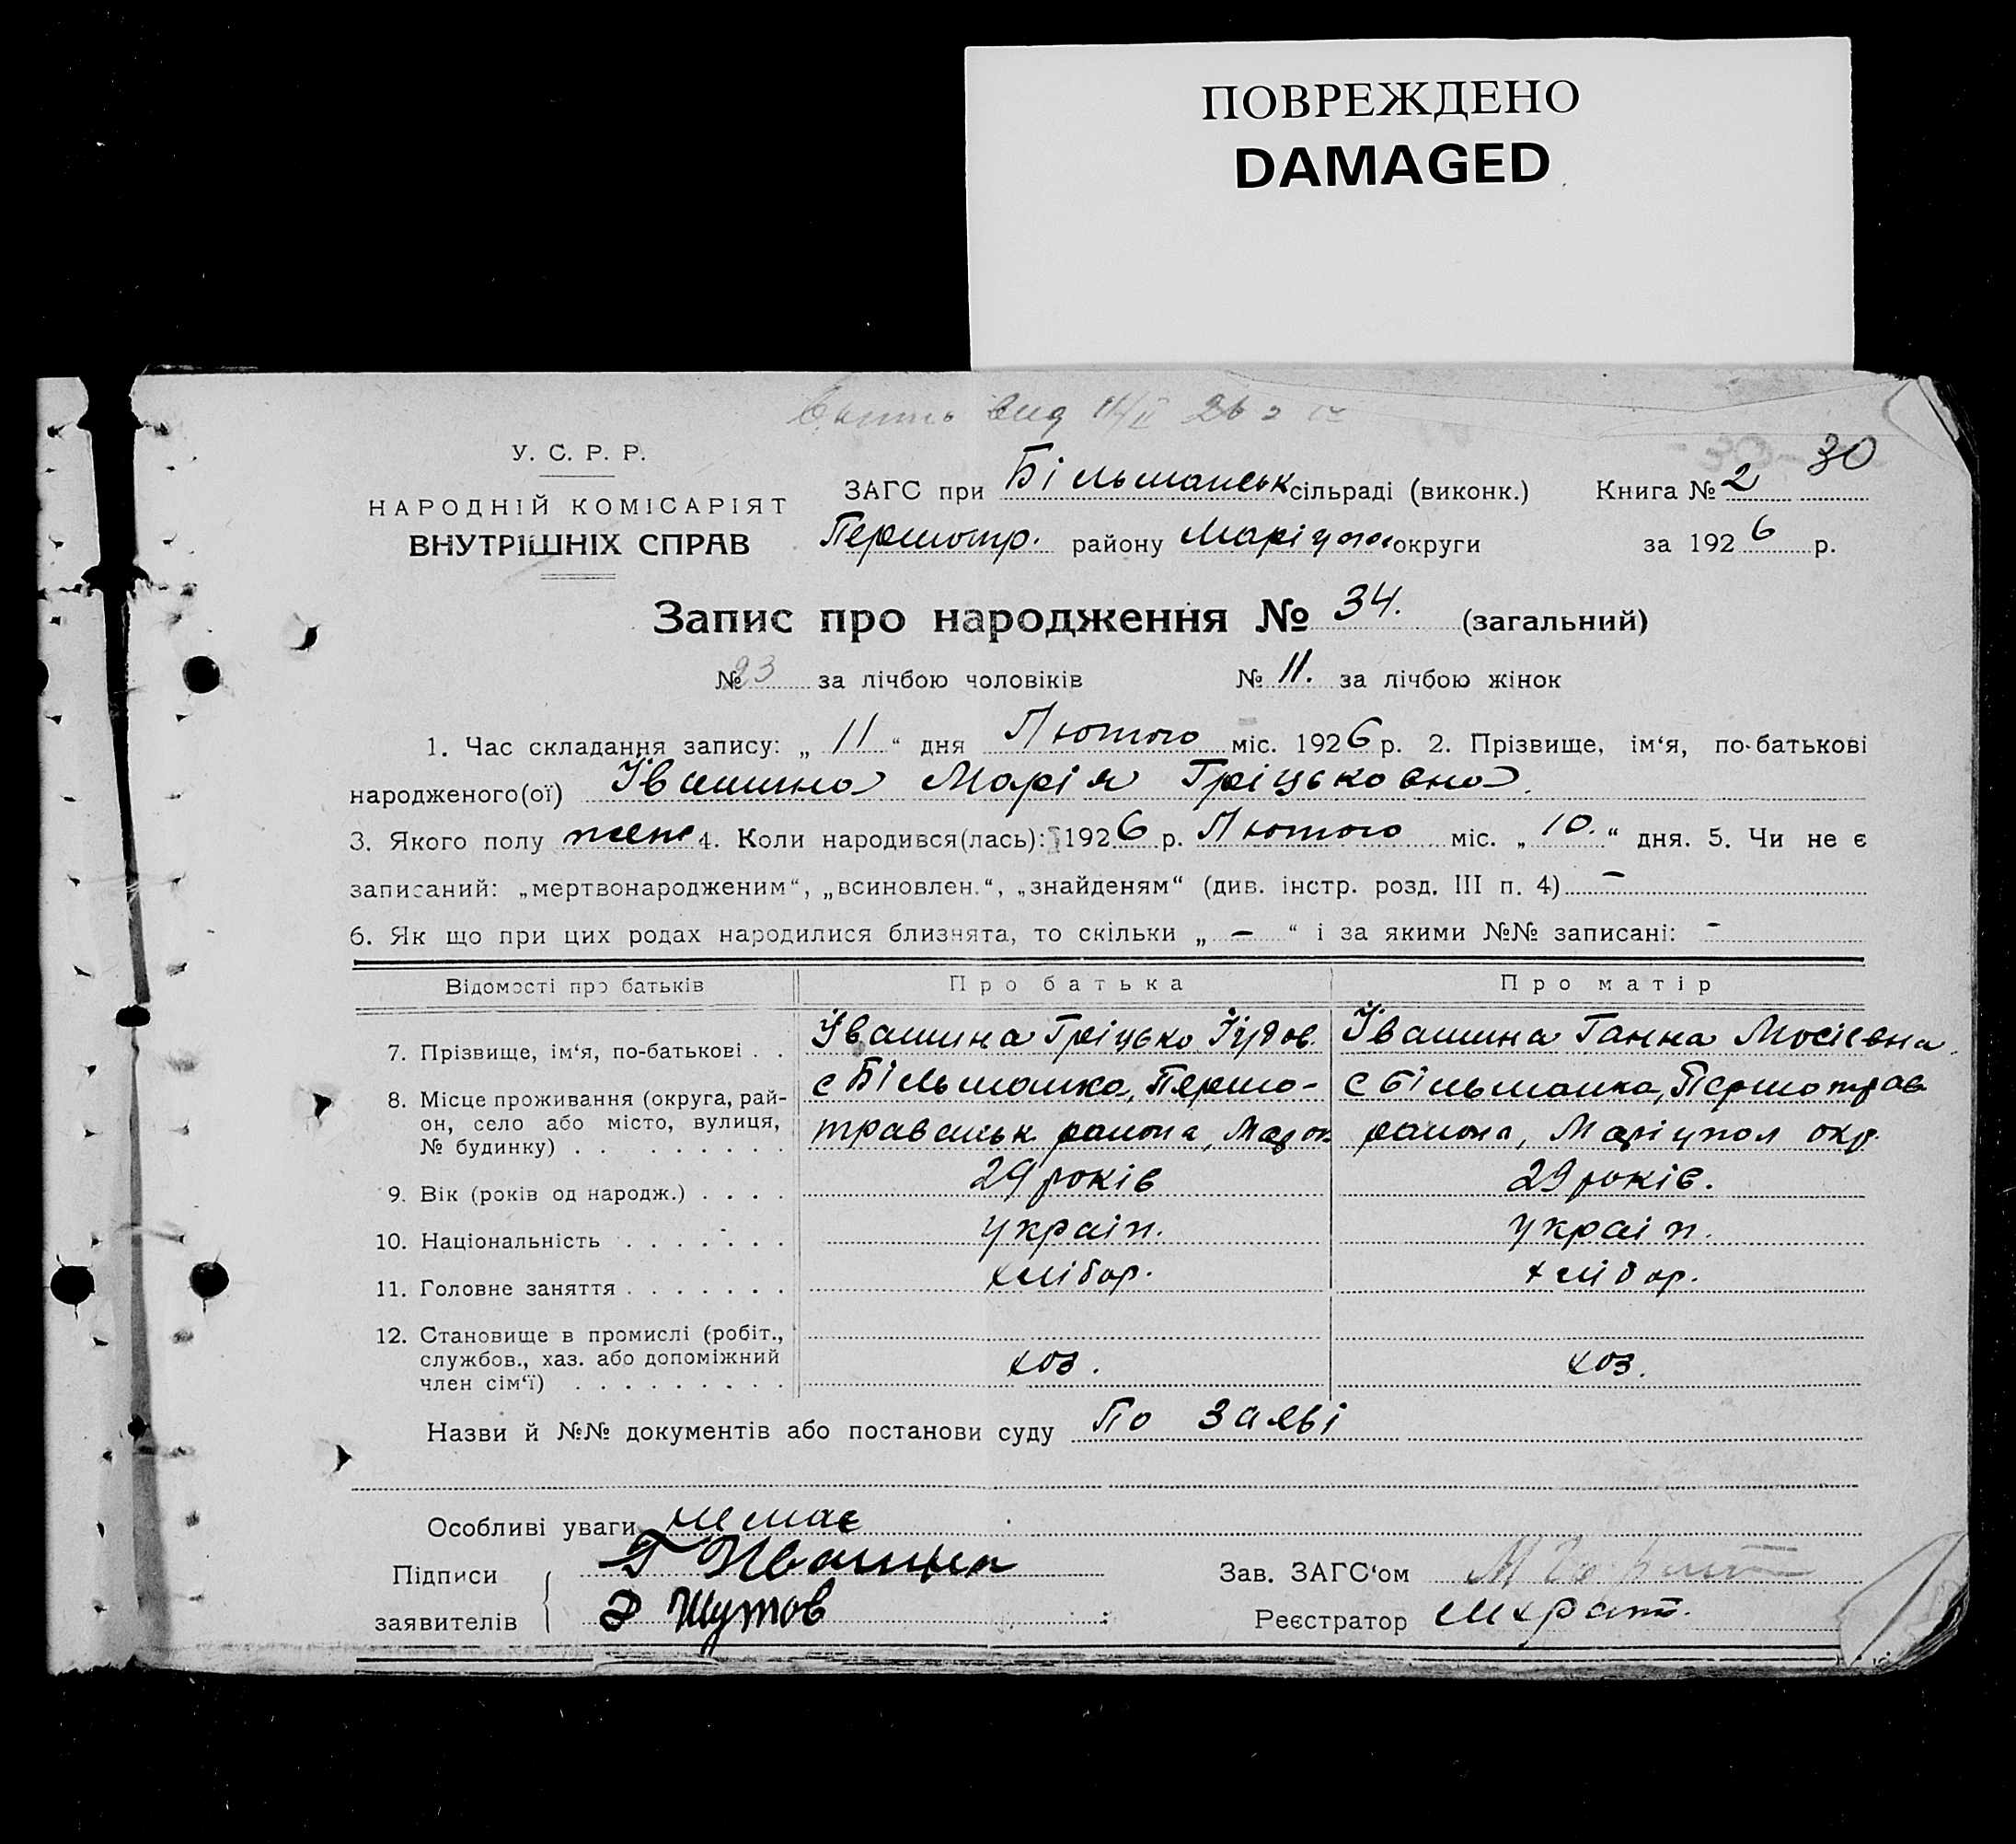 ПОВРЕЖДЕНО
DAMAGED
вид 11/II 26
У. С. Р. Р.
НАРОДНІЙ КОМІСАРІЯТ
ВНУТРІШНІХ СПРАВ
30
ЗАГС при Більманськ сільраді (виконк.) Книга № 2
Першотр. району Маріупол округи за 1926 р.
Запис про народження № 34. (загальний)
№ 23 за лічбою чоловіків № 11. за лічбою жінок
1. Час складання запису: „ 11 “ дня Лютого міс. 1926 р. 2. Прізвище, ім‘я, по-батькові
народженого(ої) Івашина Марія Гріцьковна.
3. Якого полу жен 4. Коли народився(лась): 1926 р. Лютого міс. „ 10. “ дня. 5. Чи не є
записаний: „мертвонародженим“, „всиновлен.“, „знайденям“ (див. інстр. розд. III п. 4) –
6. Як що при цих родах народилися близнята, то скільки „ – “ і за якими №№ записані: –
Відомості про батьків Про батька Про матір
7. Прізвище, ім‘я, по-батькові . . Івашина Гріцько Іудов. Івашина Ганна Мосієвна
8. Місце проживання (округа, рай- с Більманка, Першо- с Більманка, Першотрав
он, село або місто, вулиця, травенськ района, Мар ок района, Маріупол окр.
№ будинку) . . . . . . . . .
9. Вік (років од народж.) . . . . 29 років 29 років.
10. Національність . . . . . . . україн. україн.
11. Головне заняття . . . . . . . хлібор. хлібор.
12. Становище в промислі (робіт.,
службов., хаз. або допоміжний хоз. хоз.
член сім‘ї) . . . . . . . . .
Назви й №№ документів або постанови суду По заяві
Особливі уваги немає
Підписи Г Ивашина Зав. ЗАГС‘ом
заявителів Э Шутов Реєстратор